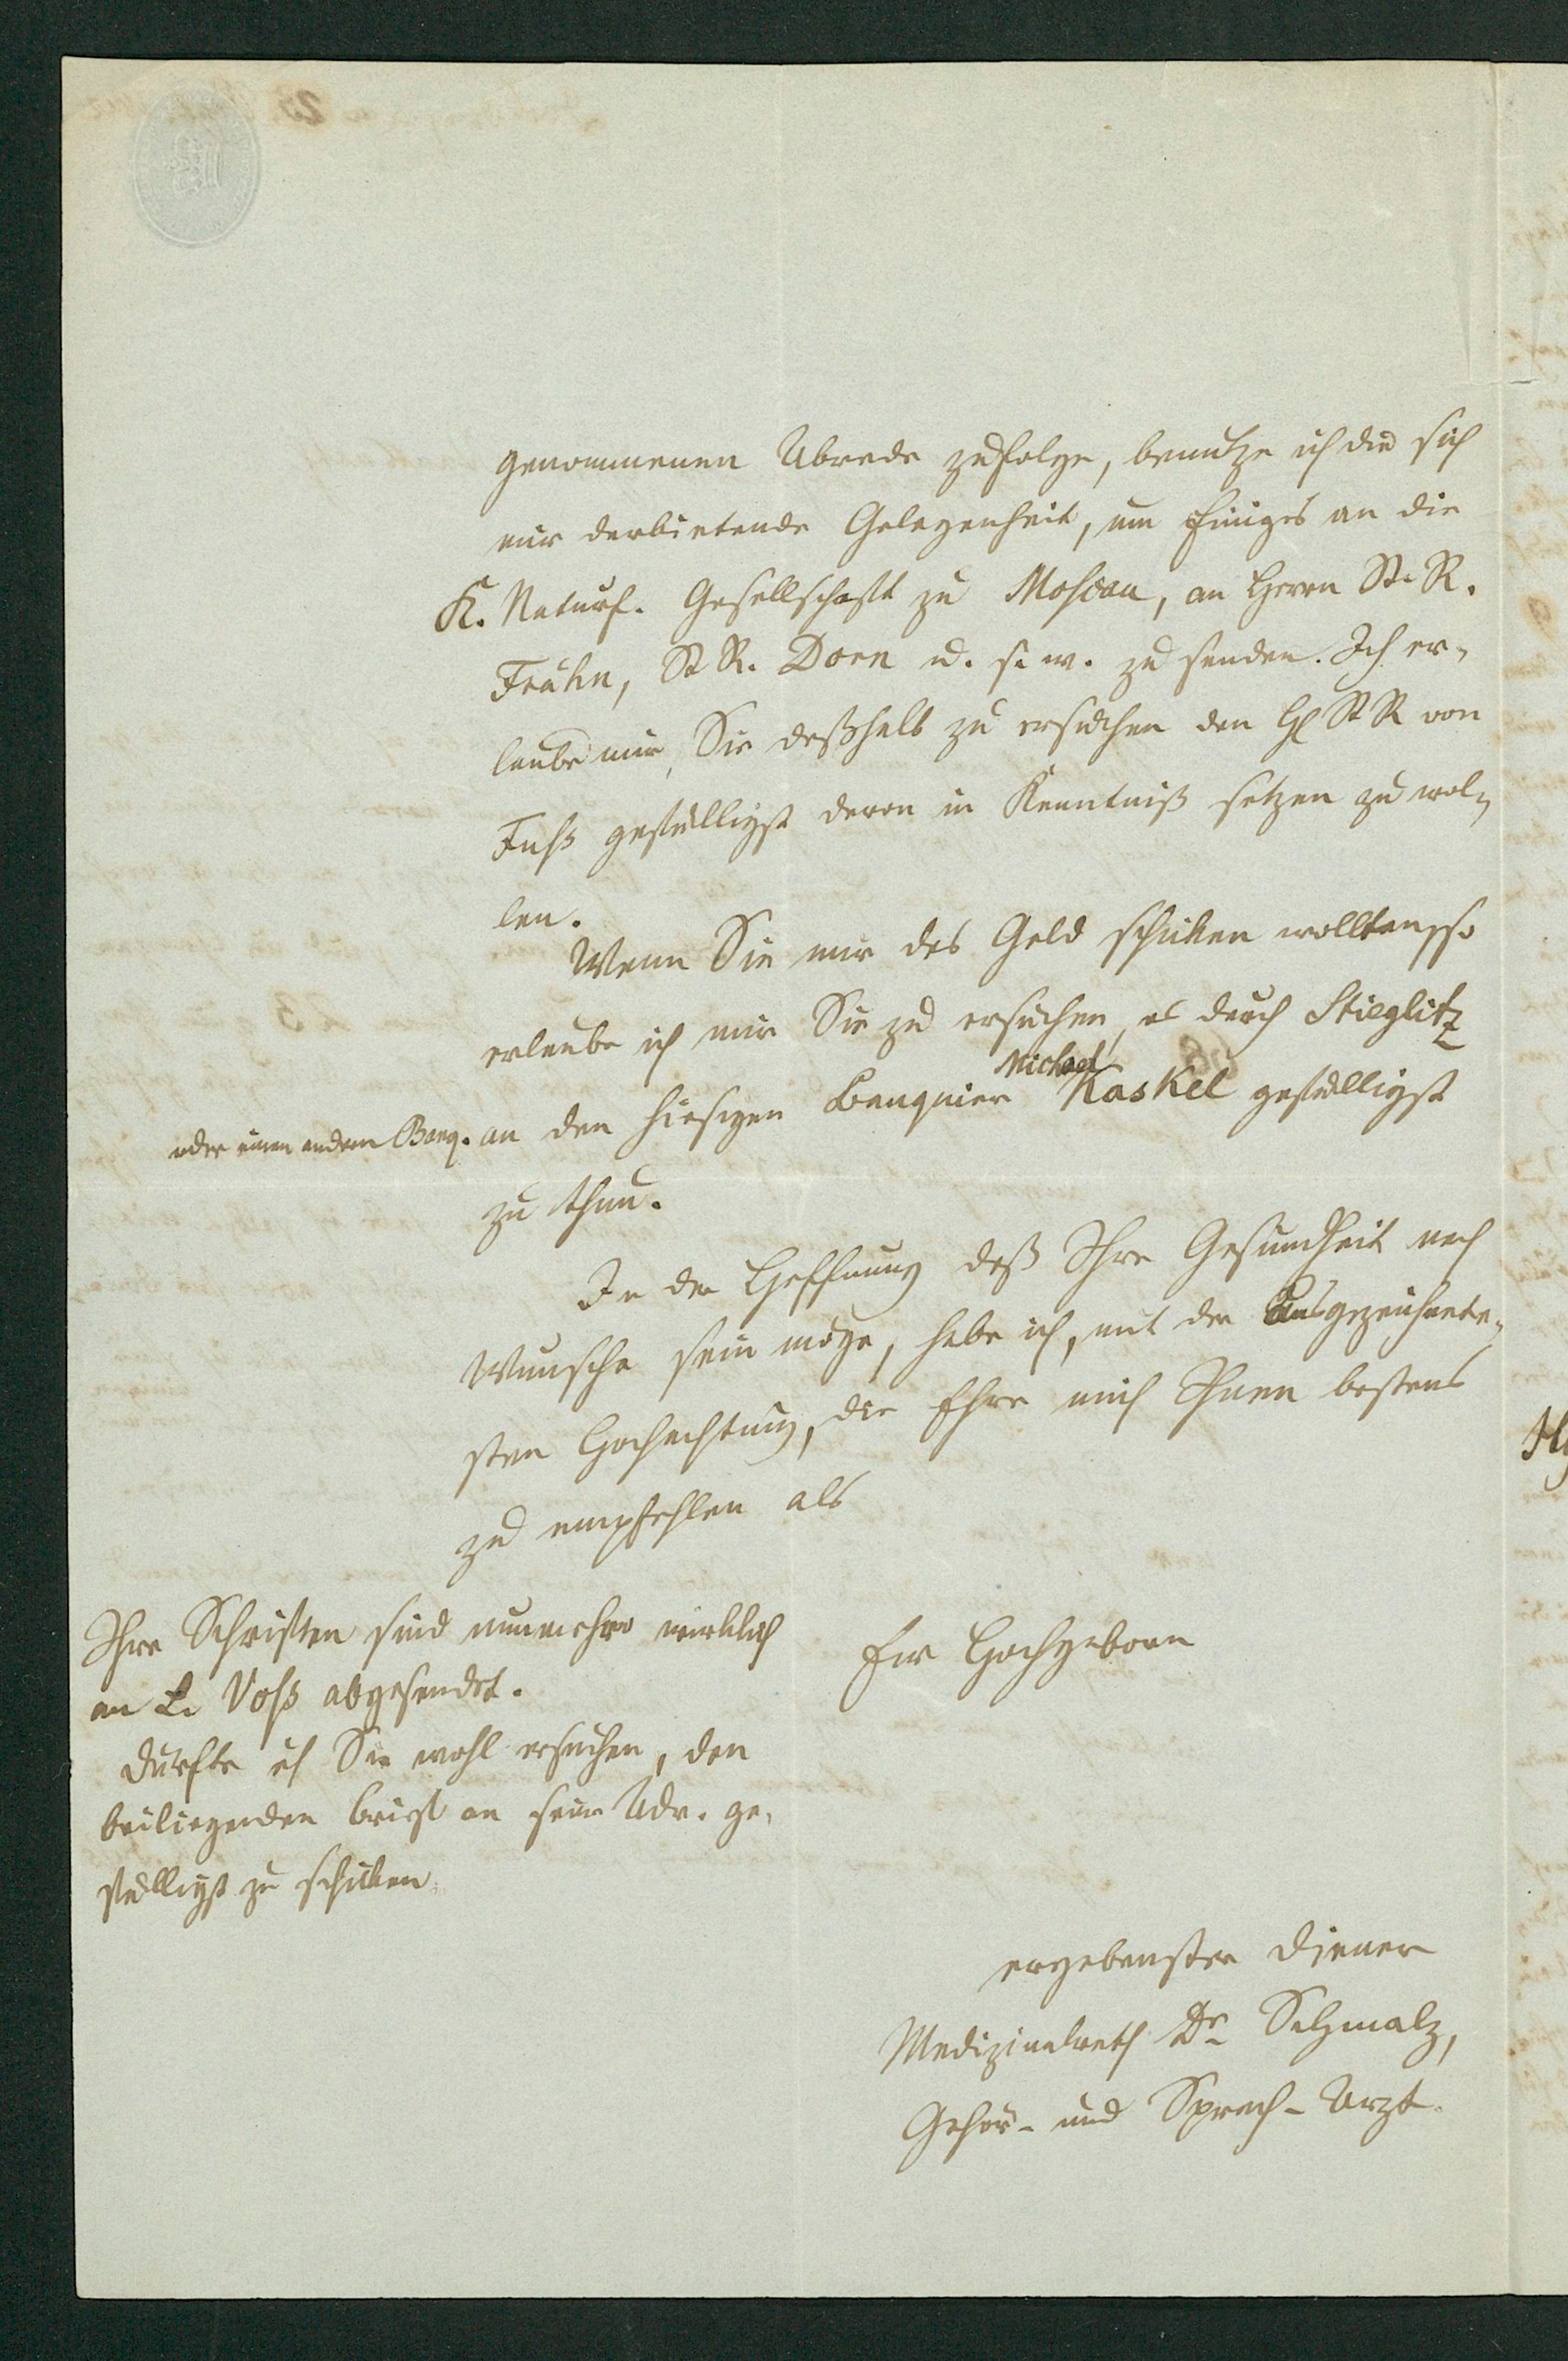 genommenen Abrede zufolge, benutze ich die sich
mir darbietende Gelegenheit, um Einiges an die
K. Naturf. Gesellschaft zu Moscau, an Herrn St. R.
Frähn, St R. Dorn u. s. w. zu senden. Ich er-
laube mir, Sie deßhalb zu ersuchen den H St R von
Fuß gefälligst davon in Kenntniß setzen zu wol-
len.
Wenn Sie mir das Geld schicken wollten, so
erlaube ich mir Sie zu ersuchen, es durch Stieglitz
an den hiesigen Banquier Michael Kaskel gefälligst
oder einen andern Banq.
zu thun.
In der Hoffnung daß Ihre Gesundheit nach
Wunsche sein möge, habe ich, mit der Ausgezeichnete-
sten Hochachtung, die Ehre mich Ihnen bestens
zu empfehlen als
Ew Hochgeboren
Ihre Schriften sind nunmehro wirklich
an L. Voß abgesendet.
Dürfte ich Sie wohl ersuchen, den
beiliegenden Brief an seine Adr. ge-
fälligst zu schicken.
ergebenster Diener
Medizinalrath Dr Schmalz,
Gehör- und Sprach-Arzt.